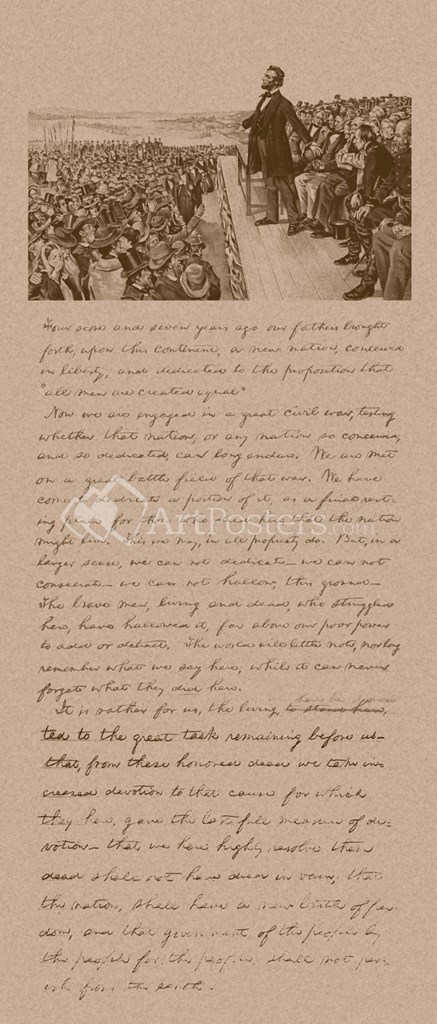 Four score and seven years ago our fathers brought
forth, upon this continent, a new nation, conceived
in liberty, and dedicated to the proposition that
"all men are created equal"
Now we are engaged in a great civil war, testing
whether that nation, or any nation so conceived,
and so dedicated, can long endure. We are met
on a great battle field of that war. We have
come to dedicate a portion of it, as a final rest-
ing place for those who died here, that the nation
might live. This we may, in all propriety do. But, in a
larger sense, we can not dedicate — we can not
consecrate — we can not hallow, this ground —
The brave men, living and dead, who struggled
here, have hallowed it, far above our poor power
to add or detract. The world will little note, nor long
remember what we say here; while it can never
forget what they did here.
It is rather for us, the living, to stand here,
ted to the great task remaining before us —
that, from these honored dead we take in-
creased devotion to that cause for which
they here, gave the last full measure of de-
votion — that we here highly resolve these
dead shall not have died in vain; that
the nation, shall have a new birth of free-
dom, and that government of the people by
the people for the people, shall not per-
ish from the earth.
ArtPosters.com